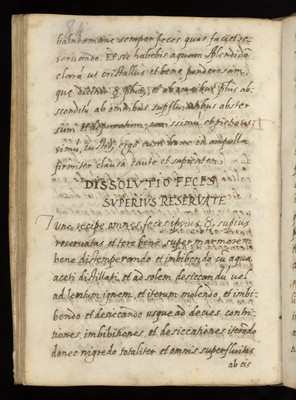 habeto mane semper feces quas facit re-
servando. Et sic habebis aquam splendida
clara ut cristallus et bene ponderosam,
que dicitur
absconditu ab omnibus superfluitatibus abster
sum et depuratum
simu, custodi ergo eam bene in ampulla
firmiter clausa caute et sapienter.
DISSOLVTIO FECES
SVPERIVS RESERVATE
Tunc recipe omnes feces ipsius supius
reservatas et tere bene super marmorem
bene distemperando et imbibendo cu aqua
aceti distillati, et ad solem desiccando vel
ad lentum ignem, et iterum molendo, et imbi-
bendo et desiccando usque ad decies contri-
tiones, imbibitiones et desiccationes iterado
donec nigredo totaliter et omnis superfluitas
ab eis